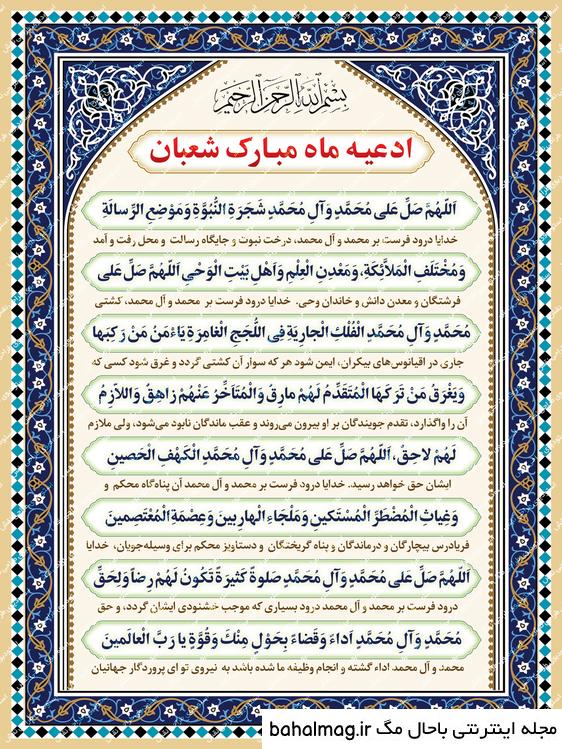 بِسْمِ ٱللَّٰهِ ٱلرَّحْمَٰنِ ٱلرَّحِيمِ
ادعیه ماه مبارک شعبان
اَللّهُمَّ صَلِّ عَلی مُحَمَّدٍ وَآلِ مُحَمَّدٍ شَجَرَةِ النُّبُوَّةِ وَمَوْضِعِ الرِّسالَةِ
خدایا درود فرست بر محمد و آل محمد، درخت نبوت و جایگاه رسالت و محل رفت و آمد
وَمُخْتَلَفِ الْمَلآئِکَةِ، وَمَعْدِنِ الْعِلْمِ وَاَهْلِ بَیْتِ الْوَحْیِ اَللّهُمَّ صَلِّ عَلی
فرشتگان و معدن دانش و خاندان وحی. خدایا درود فرست بر محمد و آل محمد، کشتی
مُحَمَّدٍ وَآلِ مُحَمَّدٍ الْفُلْكِ الْجارِیَةِ فِی اللُّجَجِ الْغامِرَةِ یَاْءمَنُ مَنْ رَکِبَها
جاری در اقیانوس‌های بیکران، ایمن شود هر که سوار آن کشتی گردد و غرق شود کسی که
وَیَغْرَقُ مَنْ تَرَکَهَا الْمُتَقَدِّمُ لَهُمْ مارِقٌ وَالْمُتَاَخِّرُ عَنْهُمْ زاهِقٌ وَاللاّزِمُ
آن را واگذارد، تقدم جویندگان بر او بیرون می‌روند و عقب ماندگان نابود می‌شود، ولی ملازم
لَهُمْ لاحِقٌ، اَللّهُمَّ صَلِّ عَلی مُحَمَّدٍ وَآلِ مُحَمَّدٍ الْکَهْفِ الْحَصینِ
ایشان حق خواهد رسید. خدایا درود فرست بر محمد و آل محمد آن پناه‌گاه محکم و
وَغِیاثِ الْمُضْطَرِّ الْمُسْتَکینِ وَمَلْجَاءِ الْهارِبینَ وَعِصْمَةِ الْمُعْتَصِمینَ
فریادرس بیچارگان و درماندگان و پناه گریختگان و دستاویز محکم برای وسیله‌جویان، خدایا
اَللّهُمَّ صَلِّ عَلی مُحَمَّدٍ وَآلِ مُحَمَّدٍ صَلوةً کَثیرَةً تَکُونُ لَهُمْ رِضاً وَلِحَقِّ
درود فرست بر محمد و آل محمد درود بسیاری که موجب خشنودی ایشان گردد، و حق
مُحَمَّدٍ وَآلِ مُحَمَّدٍ اَداءً وَقَضاءً بِحَوْلٍ مِنْكَ وَقُوَّةٍ یا رَبَّ الْعالَمینَ
محمد و آل محمد اداء گشته و انجام وظیفه ما شده باشد به نیروی تو ای پروردگار جهانیان
مجله اینترنتی باحال مگ bahalmag.ir